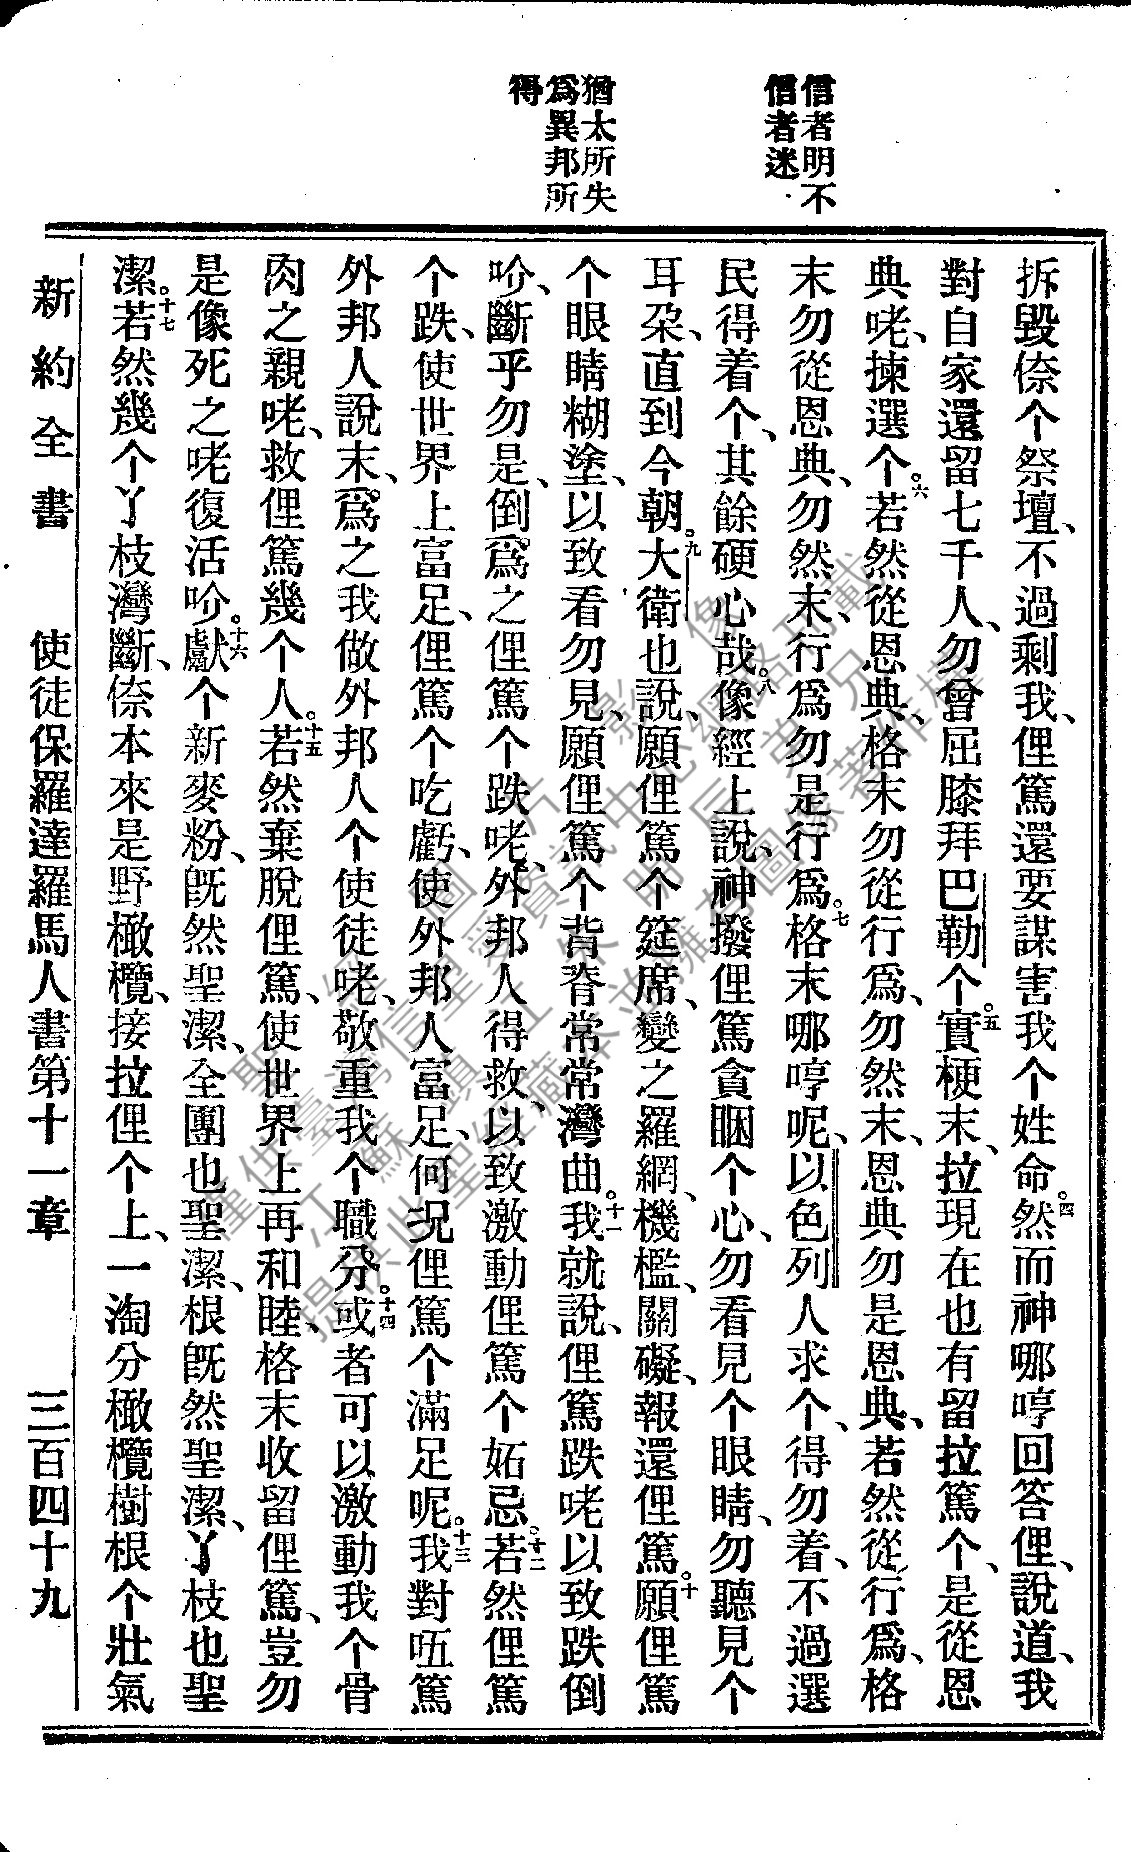 信者明不
信者迷
猶太所失
爲異邦所
得
拆毀㑚个祭壇、不過剩我、俚篤還要謀害我个姓命。四然而神哪哼回答俚、說道、我
對自家還留七千人、勿曾屈膝拜巴勒个。五實梗末、拉現在也有留拉篤个、是從恩
典咾、揀選个。六若然從恩典、格末勿從行爲、勿然末、恩典勿是恩典、若然從行爲、格
末勿從恩典、勿然末、行爲勿是行爲。七格末哪哼呢、以色列人求个、得勿着、不過選
民得着个、其餘硬心哉。八像經上說、神撥俚篤貪睏个心、勿看見个眼睛、勿聽見个
耳朶、直到今朝。九大衛也說、願俚篤个筵席、變之羅網、機檻、關礙、報還俚篤。十願俚篤
个眼睛糊塗、以致看勿見、願俚篤个背脊常常灣曲。十一我就說、俚篤跌咾以致跌倒
吤、斷乎勿是、倒爲之俚篤个跌咾、外邦人得救、以致激動俚篤个妬忌。十二若然俚篤
个跌、使世界上富足、俚篤个吃虧、使外邦人富足、何况俚篤个滿足呢。十三我對㕶篤
外邦人說末、爲之我做外邦人个使徒咾、敬重我个職分。十四或者可以激動我个骨
肉之親咾、救俚篤幾个人。十五若然棄脫俚篤、使世界上再和睦、格末收留俚篤、豈勿
是像死之咾復活吤。十六獻个新麥粉、旣然聖潔、全團也聖潔、根旣然聖潔、丫枝也聖
潔。十七若然幾个丫枝灣斷、㑚本來是野橄欖、接拉俚个上、一淘分橄欖樹根个壯氣
新約全書 使徒保羅達羅馬人書第十一章 三百四十九
聖經圖片影像
僅供臺灣信望愛資訊中心網路刊載
江蘇鎮江徐明辰弟兄
提供此聖經藏本並擁有圖像著作權